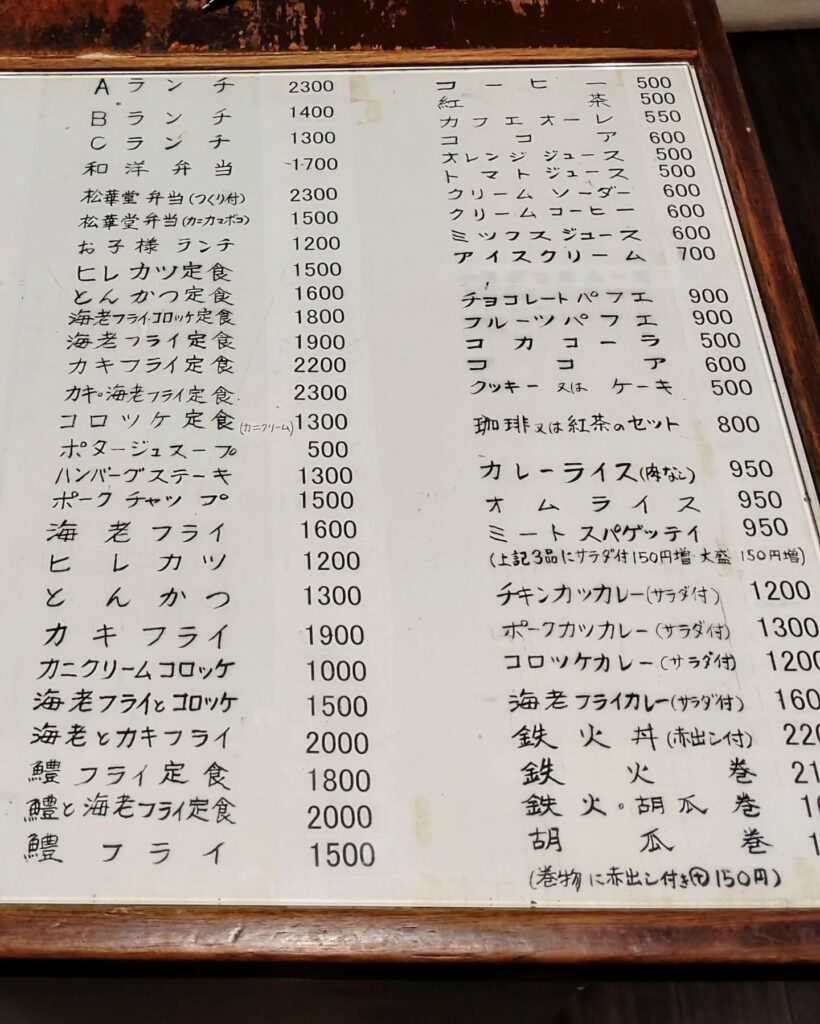 Aランチ 2300
Bランチ 1400
Cランチ 1300
和洋弁当 1700
松華堂弁当(つくり付) 2300
松華堂弁当(カニカマボコ) 1500
お子様ランチ 1200
ヒレカツ定食 1500
とんかつ定食 1600
海老フライ・コロッケ定食 1800
海老フライ定食 1900
カキフライ定食 2200
カキ・海老フライ定食 2300
コロッケ定食(カニクリーム) 1300
ポタージュスープ 500
ハンバーグステーキ 1300
ポークチャップ 1500
海老フライ 1600
ヒレカツ 1200
とんかつ 1300
カキフライ 1900
カニクリームコロッケ 1000
海老フライとコロッケ 1500
海老とカキフライ 2000
鱧フライ定食 1800
鱧と海老フライ定食 2000
鱧フライ 1500
コーヒー 500
紅茶 500
カフエオーレ 550
ココア 600
オレンジジュース 500
トマトジュース 500
クリームソーダー 600
クリームコーヒー 600
ミックスジュース 600
アイスクリーム 700
チョコレートパフエ 900
フルーツパフエ 900
コカコーラ 500
ココア 600
クッキー又はケーキ 500
珈琲又は紅茶のセット 800
カレーライス(肉なし) 950
オムライス 950
ミートスパゲッテイ 950
(上記3品にサラダ付150円増 大盛150円増)
チキンカツカレー(サラダ付) 1200
ポークカツカレー(サラダ付) 1300
コロッケカレー(サラダ付) 1200
海老フライカレー(サラダ付) 160
鉄火丼(赤出し付) 220
鉄火巻 21
鉄火・胡瓜巻 1
胡瓜巻 1
(巻物に赤出し付き㊉150円)